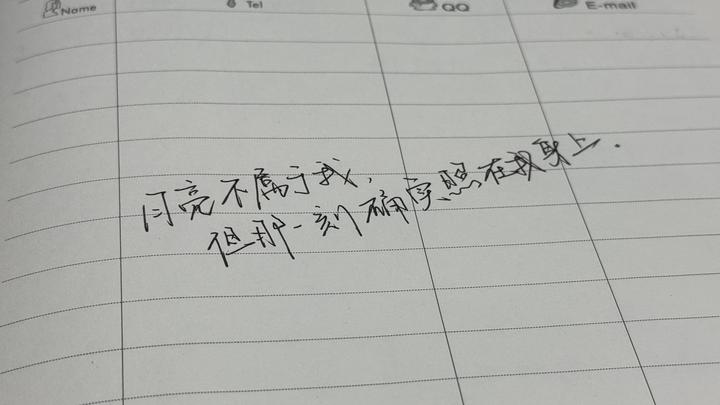 Name Tel QQ E-mail
月亮不属于我,
但那一刻确实照在我身上.